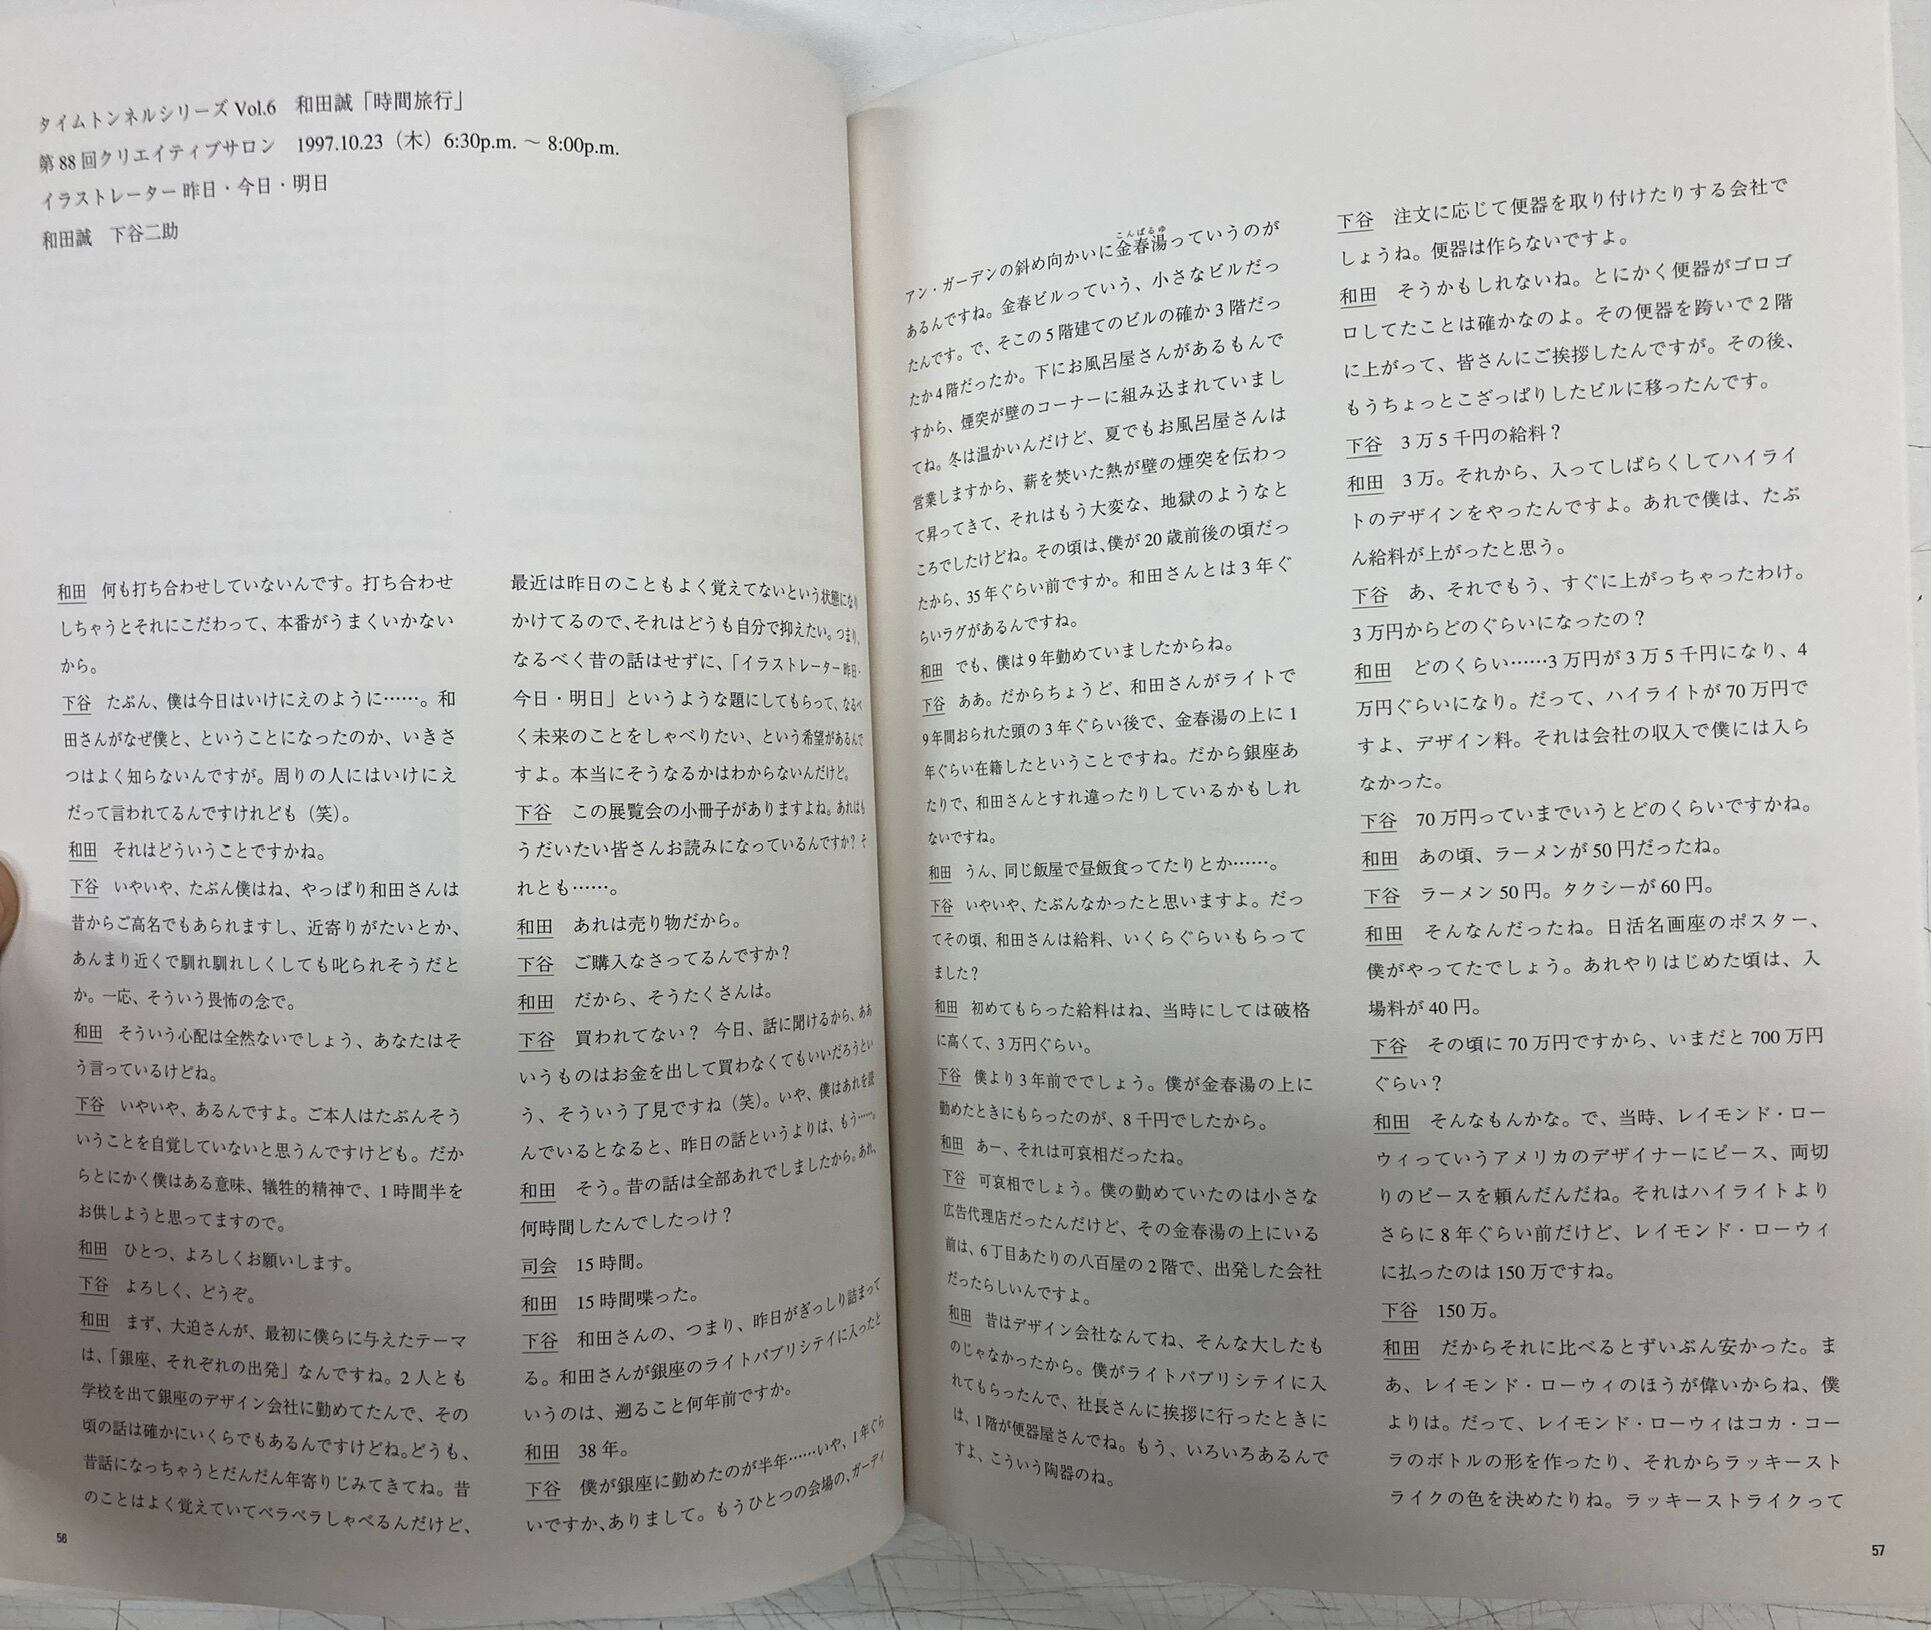 タイムトンネルシリーズ Vol.6　和田誠「時間旅行」
第88回クリエイティブサロン　1997.10.23（木）6:30p.m. ～ 8:00p.m.
イラストレーター 昨日・今日・明日
和田誠　下谷二助
和田　何も打ち合わせしていないんです。打ち合わせ
しちゃうとそれにこだわって、本番がうまくいかない
から。
下谷　たぶん、僕は今日はいけにえのように……。和
田さんがなぜ僕と、ということになったのか、いきさ
つはよく知らないんですが。周りの人にはいけにえ
だって言われてるんですけれども（笑）。
和田　それはどういうことですかね。
下谷　いやいや、たぶん僕はね、やっぱり和田さんは
昔からご高名でもあられますし、近寄りがたいとか、
あんまり近くで馴れ馴れしくしても叱られそうだと
か。一応、そういう畏怖の念で。
和田　そういう心配は全然ないでしょう、あなたはそ
う言っているけどね。
下谷　いやいや、あるんですよ。ご本人はたぶんそう
いうことを自覚していないと思うんですけども。だか
らとにかく僕はある意味、犠牲的精神で、1時間半を
お供しようと思ってますので。
和田　ひとつ、よろしくお願いします。
下谷　よろしく、どうぞ。
和田　まず、大迫さんが、最初に僕らに与えたテーマ
は、「銀座、それぞれの出発」なんですね。2人とも
学校を出て銀座のデザイン会社に勤めてたんで、その
頃の話は確かにいくらでもあるんですけどね。どうも、
昔話になっちゃうとだんだん年寄りじみてきてね。昔
のことはよく覚えていてベラベラしゃべるんだけど、
最近は昨日のこともよく覚えてないという状態になり
かけてるので、それはどうも自分で抑えたい。つまり、
なるべく昔の話はせずに、「イラストレーター 昨日・
今日・明日」というような題にしてもらって、なるべ
く未来のことをしゃべりたい、という希望があるんで
すよ。本当にそうなるかはわからないんだけど。
下谷　この展覧会の小冊子がありますよね。あれはも
うだいたい皆さんお読みになっているんですか？ そ
れとも……。
和田　あれは売り物だから。
下谷　ご購入なさってるんですか？
和田　だから、そうたくさんは。
下谷　買われてない？　今日、話に聞けるから、ああ
いうものはお金を出して買わなくてもいいだろうとい
う、そういう了見ですね（笑）。いや、僕はあれを読
んでいるとなると、昨日の話というよりは、もう……。
和田　そう。昔の話は全部あれでしましたから。あれ、
何時間したんでしたっけ？
司会　15時間。
和田　15時間喋った。
下谷　和田さんの、つまり、昨日がぎっしり詰まって
る。和田さんが銀座のライトパブリシテイに入ったと
いうのは、遡ること何年前ですか。
和田　38年。
下谷　僕が銀座に勤めたのが半年……いや、1年ぐら
いですか、ありまして。もうひとつの会場の、ガーディ
56
アン・ガーデンの斜め向かいに金春湯っていうのが
こんぱるゆ
あるんですね。金春ビルっていう、小さなビルだっ
たんです。で、そこの5階建てのビルの確か3階だっ
たか4階だったか。下にお風呂屋さんがあるもんで
すから、煙突が壁のコーナーに組み込まれていまし
てね。冬は温かいんだけど、夏でもお風呂屋さんは
営業しますから、薪を焚いた熱が壁の煙突を伝わっ
て昇ってきて、それはもう大変な、地獄のようなと
ころでしたけどね。その頃は、僕が20歳前後の頃だっ
たから、35年ぐらい前ですか。和田さんとは3年ぐ
らいラグがあるんですね。
和田　でも、僕は9年勤めていましたからね。
下谷　ああ。だからちょうど、和田さんがライトで
9年間おられた頭の3年ぐらい後で、金春湯の上に1
年ぐらい在籍したということですね。だから銀座あ
たりで、和田さんとすれ違ったりしているかもしれ
ないですね。
和田　うん、同じ飯屋で昼飯食ってたりとか……。
下谷　いやいや、たぶんなかったと思いますよ。だっ
てその頃、和田さんは給料、いくらぐらいもらって
ました？
和田　初めてもらった給料はね、当時にしては破格
に高くて、3万円ぐらい。
下谷　僕より3年前ででしょう。僕が金春湯の上に
勤めたときにもらったのが、8千円でしたから。
和田　あー、それは可哀相だったね。
下谷　可哀相でしょう。僕の勤めていたのは小さな
広告代理店だったんだけど、その金春湯の上にいる
前は、6丁目あたりの八百屋の2階で、出発した会社
だったらしいんですよ。
和田　昔はデザイン会社なんてね、そんな大したも
のじゃなかったから。僕がライトパブリシテイに入
れてもらったんで、社長さんに挨拶に行ったときに
は、1階が便器屋さんでね。もう、いろいろあるんで
すよ、こういう陶器のね。
下谷　注文に応じて便器を取り付けたりする会社で
しょうね。便器は作らないですよ。
和田　そうかもしれないね。とにかく便器がゴロゴ
ロしてたことは確かなのよ。その便器を跨いで2階
に上がって、皆さんにご挨拶したんですが。その後、
もうちょっとこざっぱりしたビルに移ったんです。
下谷　3万5千円の給料？
和田　3万。それから、入ってしばらくしてハイライ
トのデザインをやったんですよ。あれで僕は、たぶ
ん給料が上がったと思う。
下谷　あ、それでもう、すぐに上がっちゃったわけ。
3万円からどのぐらいになったの？
和田　どのくらい……3万円が3万5千円になり、4
万円ぐらいになり。だって、ハイライトが70万円で
すよ、デザイン料。それは会社の収入で僕には入ら
なかった。
下谷　70万円っていまでいうとどのくらいですかね。
和田　あの頃、ラーメンが50円だったね。
下谷　ラーメン50円。タクシーが60円。
和田　そんなんだったね。日活名画座のポスター、
僕がやってたでしょう。あれやりはじめた頃は、入
場料が40円。
下谷　その頃に70万円ですから、いまだと700万円
ぐらい？
和田　そんなもんかな。で、当時、レイモンド・ロー
ウィっていうアメリカのデザイナーにピース、両切
りのピースを頼んだんだね。それはハイライトより
さらに8年ぐらい前だけど、レイモンド・ローウィ
に払ったのは150万ですね。
下谷　150万。
和田　だからそれに比べるとずいぶん安かった。ま
あ、レイモンド・ローウィのほうが偉いからね、僕
よりは。だって、レイモンド・ローウィはコカ・コー
ラのボトルの形を作ったり、それからラッキースト
ライクの色を決めたりね。ラッキーストライクって
57